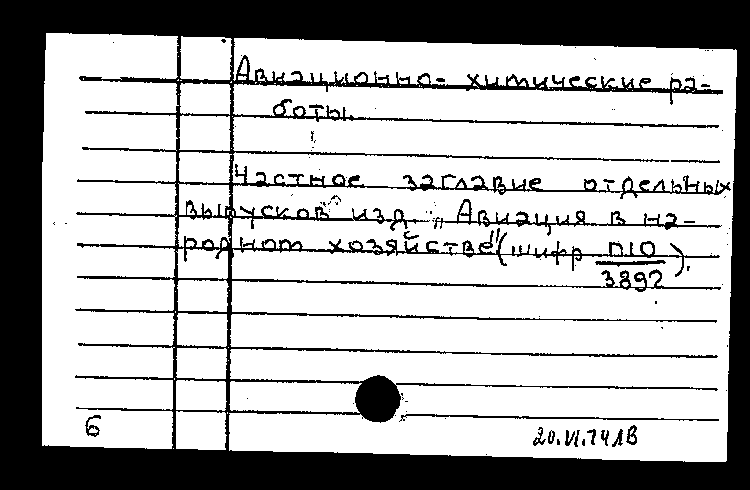 Авиационно-химические ра-
боты.
Частное заглавие отдельных
выпусков изд. „Авиация в на-
родном хозяйстве" (шифр П10/3892).
6
20.VI.74